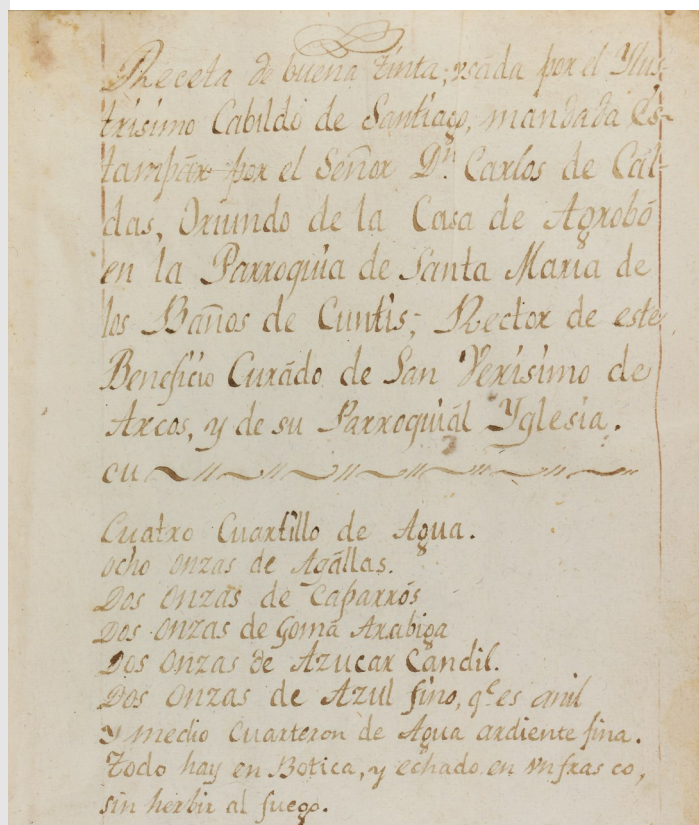 Receta de buena tinta, usada por el Ylus-
trisimo Cabildo de Santiago, mandada Es-
tampár por el Señor Dn. Carlos de Cál-
das, Oriundo de la Casa de Agrobó
en la Parroquia de Santa Maria de
los Baños de Cuntis; Rector de este
Beneficio Curádo de San Verisimo de
Arcos, y de su Parroquiál Yglesia.
cu
Cuatro Cuartillo de Agua.
ocho onzas de Agállas.
Dos onzas de Caparrós
Dos onzas de Goma Arabiga
Dos onzas de Azucar Candil.
Dos onzas de Azul fino, qe. es anil
Y medio Cuarteron de Agua ardiente fina.
Todo hay en Botica, y echado en vn frasco,
sin herbir al fuego.